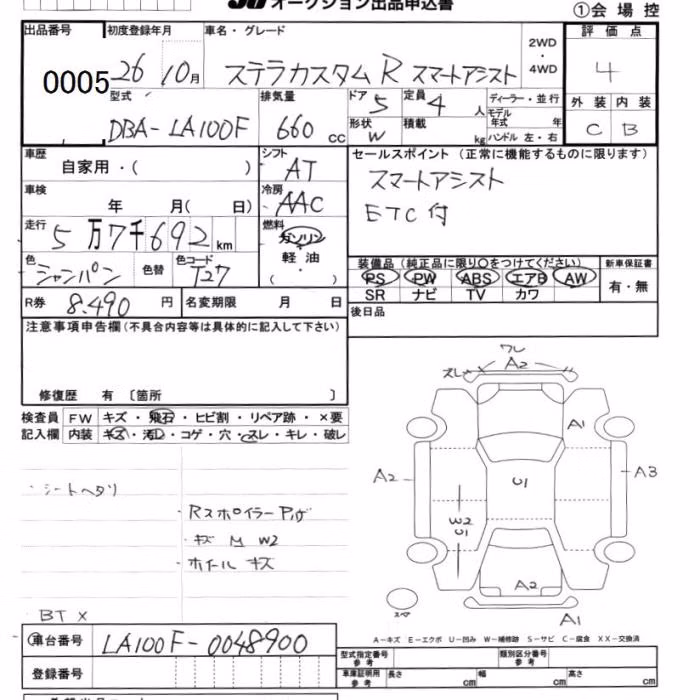 オークション出品申込書
①会場控
出品番号 初度登録年月 車名・グレード 評価点
0005 26 10月 ステラカスタムR スマートアシスト 2WD・4WD 4
型式 排気量 ドア 定員 ディーラー・並行 外装 内装
DBA-LA100F 660cc 5 4人 モデル年式 年 C B
形状 W 積載 kg ハンドル 左・右
車歴 自家用・( ) シフト AT セールスポイント (正常に機能するものに限ります)
車検 年 月( 日) 冷房 AAC スマートアシスト
ETC付
走行 5万7千692km 燃料 ガソリン・軽油・( )
色 シャンパン 色替 色コード T27 装備品(純正品に限り○をつけてください) 新車保証書
PS PW ABS エアB AW 有・無
SR ナビ TV カワ
R券 8.490円 名変期限 月 日 後日品
注意事項申告欄(不具合内容等は具体的に記入して下さい)
修復歴 有 〔箇所 〕
検査員 FW キズ・飛石・ヒビ割・リペア跡・×要
記入欄 内装 キズ・汚れ・コゲ・穴・スレ・キレ・破レ
・シートヘタリ
・Rスポイラー
・キズ M W2
・ホイール キズ
BT×
ワレ
スレ A2
A1
A2
A3
U1
W2
U1
A2
スペア
A1
A-キズ E-エクボ U-凹み W-補修跡 S-サビ C-腐食 XX-交換済
車台番号 LA100F-0048900
型式指定番号 参考 類別区分番号 参考
登録番号 車庫証明用 参考 長さ cm 幅 cm 高さ cm